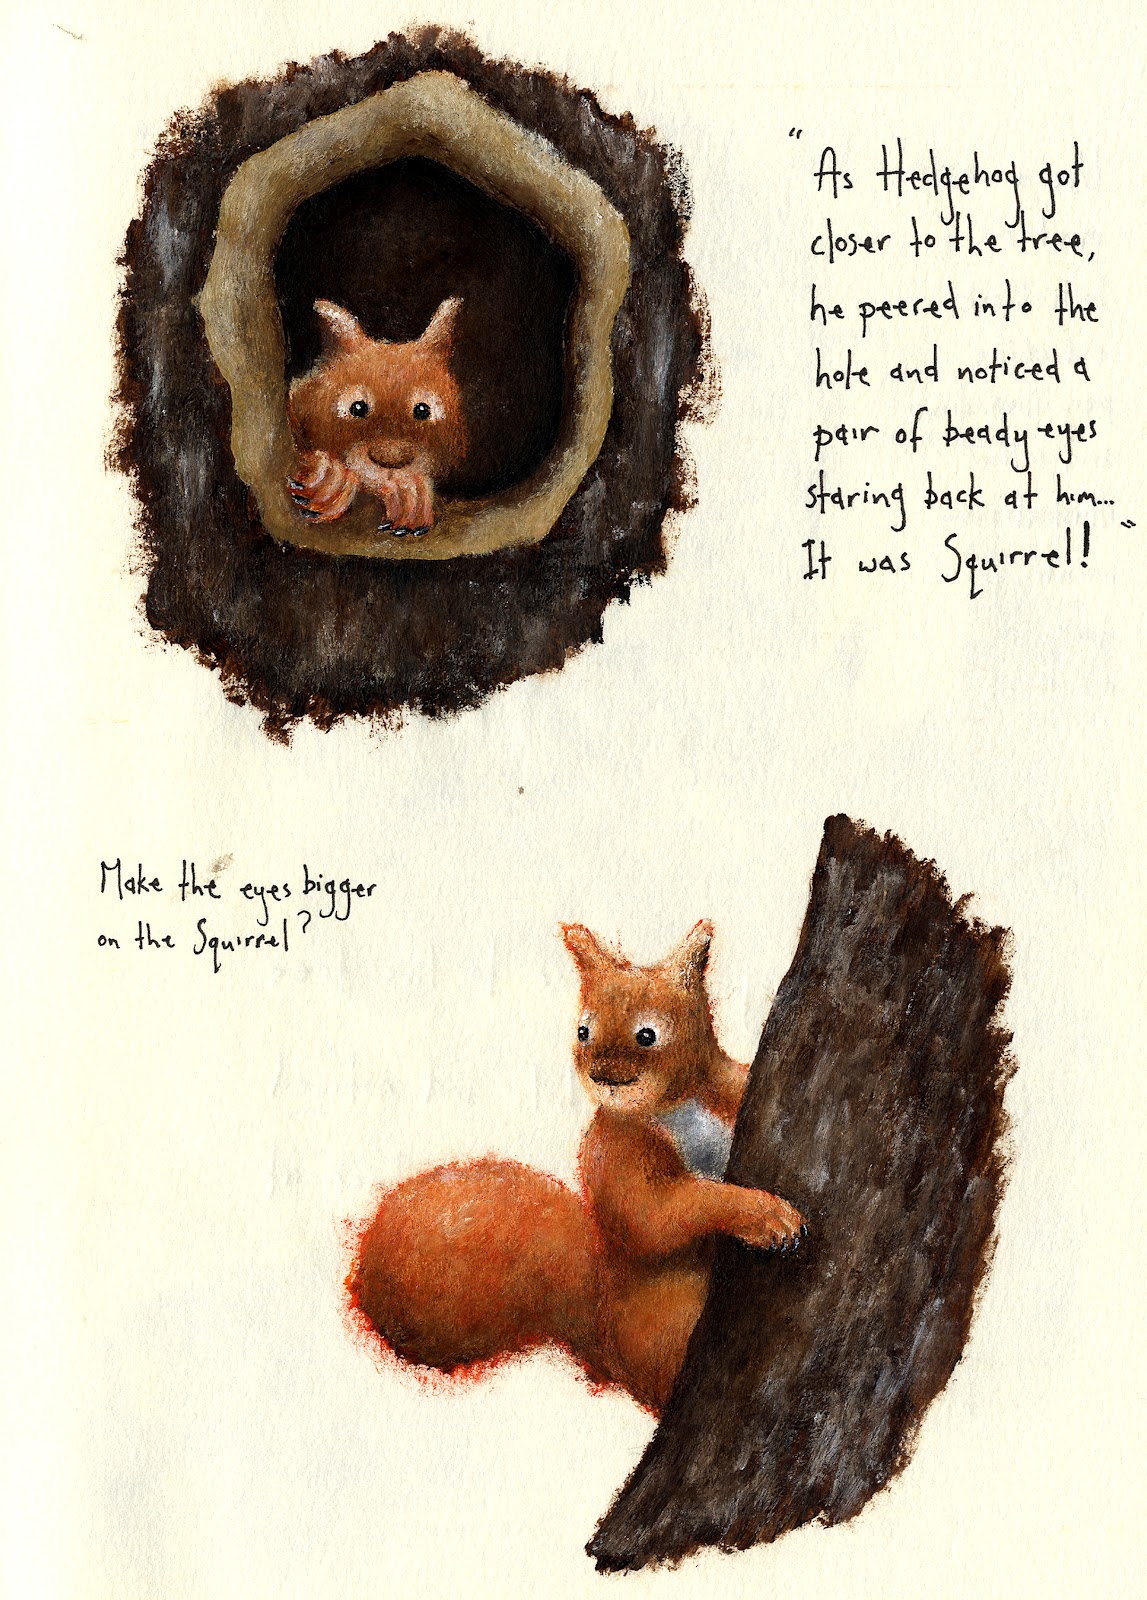 "As Hedgehog got
closer to the tree,
he peered into the
hole and noticed a
pair of beady eyes
staring back at him...
It was Squirrel!"
Make the eyes bigger
on the Squirrel?